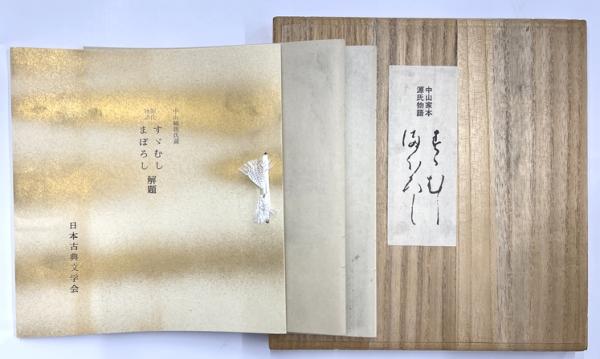 中山輔親氏蔵
源氏物語
すゞむし
まぼろし
解題
日本古典文学会
中山家本
源氏物語
すゝむし
まほろし